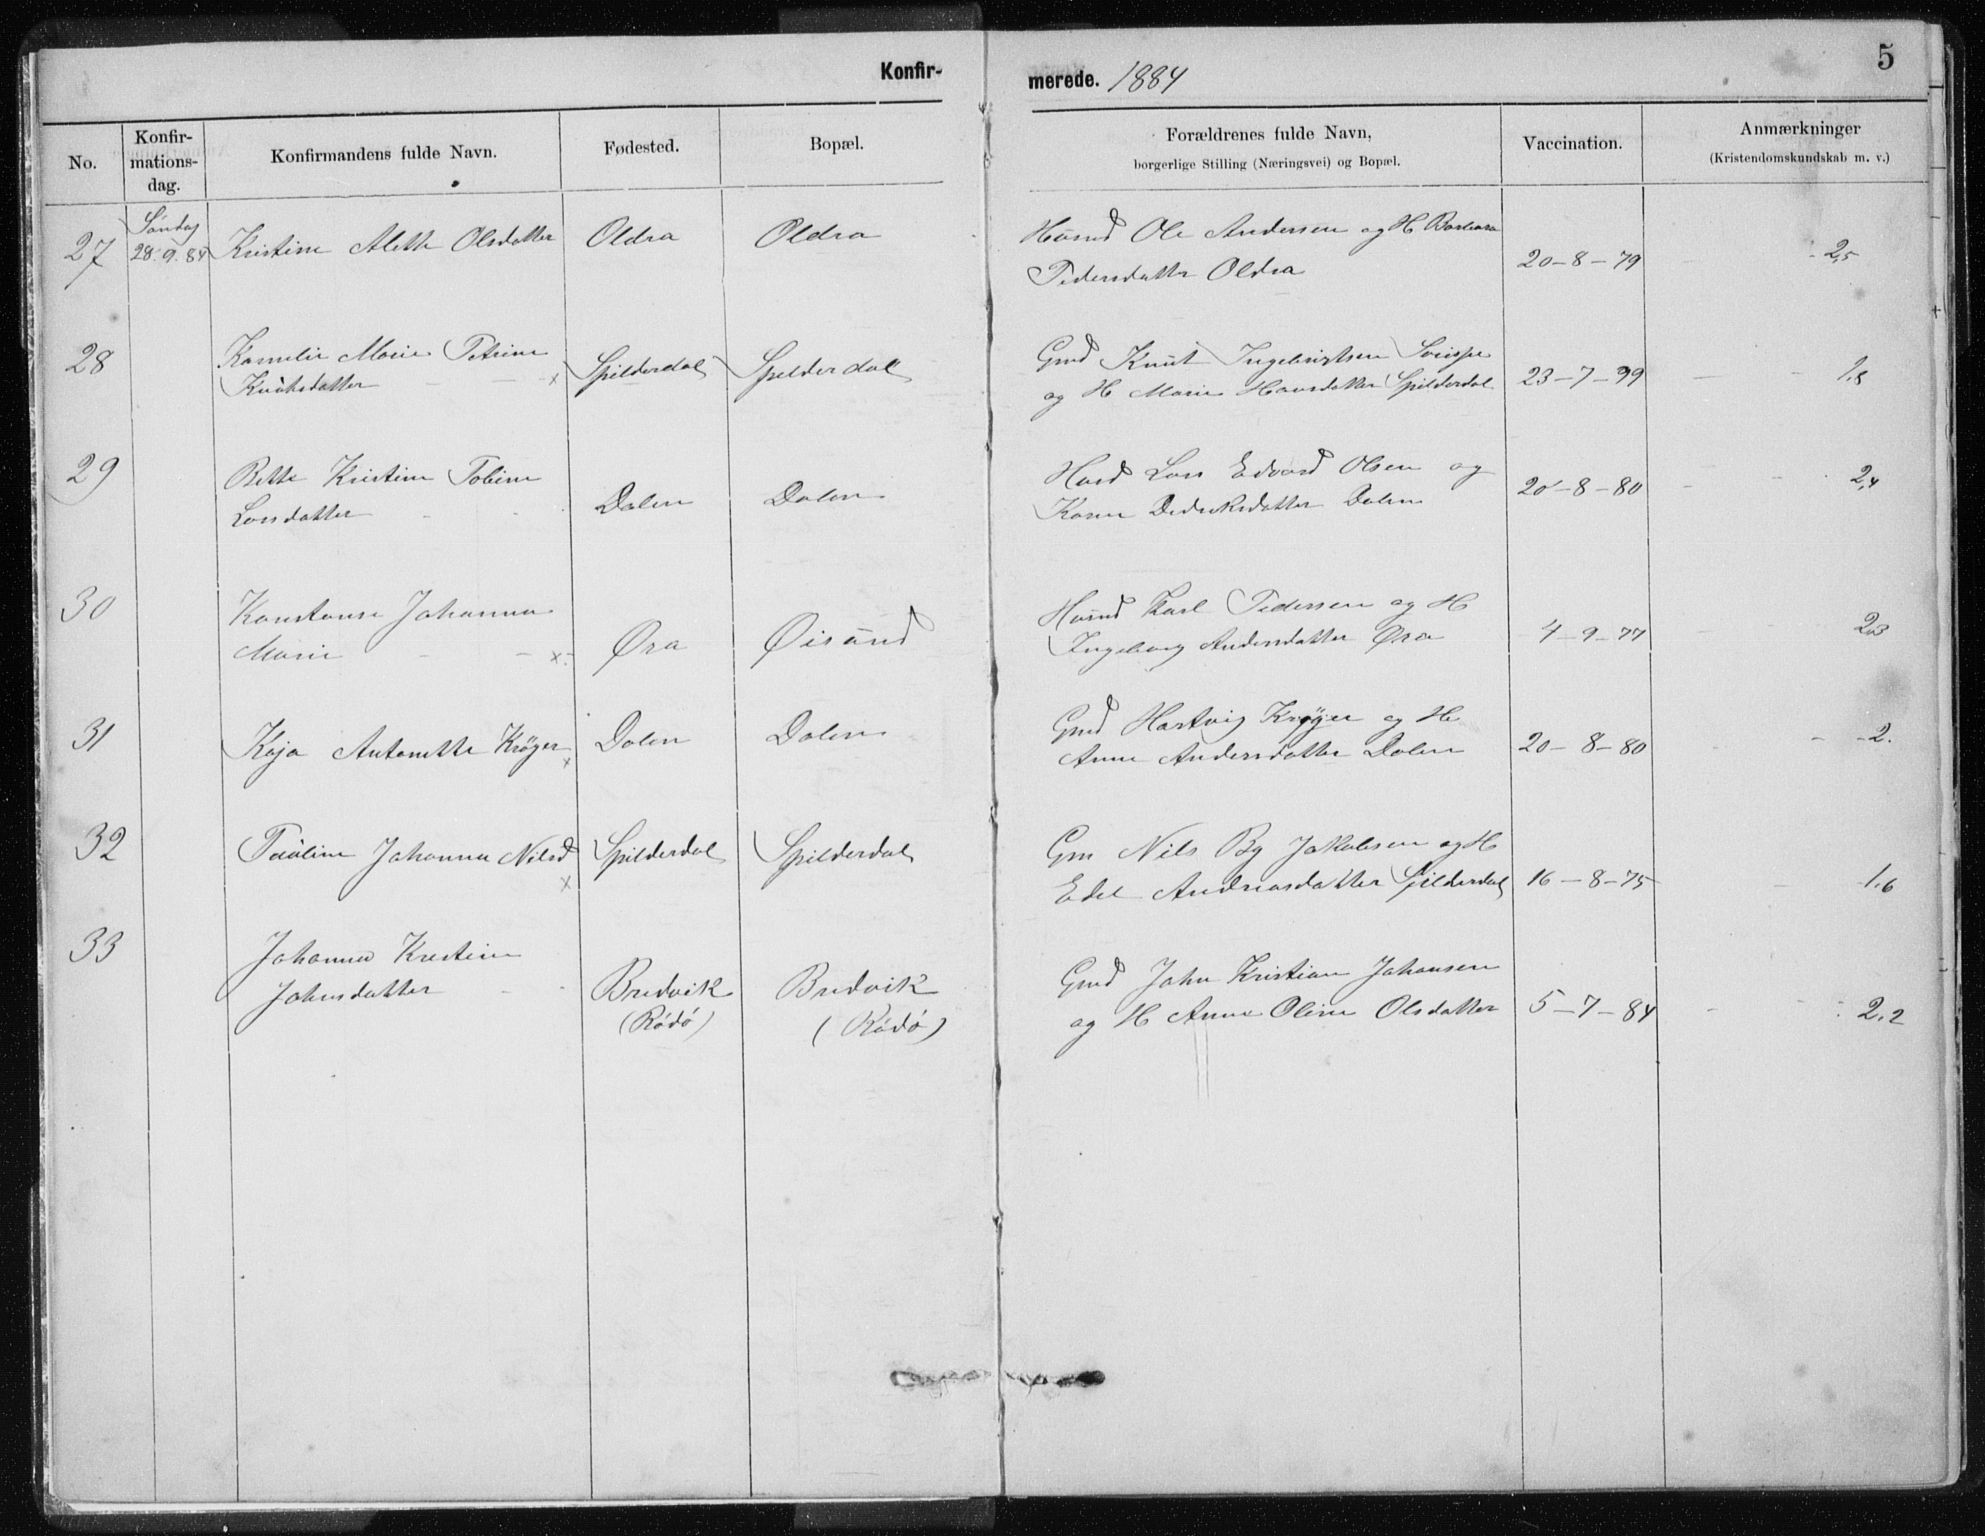 5
Konfir- merede. 1884
No.
Konfir-
mations-
dag.
Konfirmandens fulde Navn.
Fødested.
Bopæl.
Forældrenes fulde Navn,
borgerlige Stilling (Næringsvei) og Bopæl.
Vaccination.
Anmærkninger
(Kristendomskundskab m. v.)
27 Søndag
28.9.84 Kristine Alette Olsdatter Oldra Oldra
Husmd Ole Andersen og H Barbara
Pedersdatter Oldra 20-8-79 2,5
28 Kornelie Marie Petrine
Knutsdatter x Spilderdal Spilderdal
Gmd Knut Ingebrigtsen
og H Marie Hansdatter Spilderdal 23-7-79 1.8
29 Kristine Tobine
Larsdatter Dalen Dalen
Lars Edvard Olsen og
Karen Dedriksdatter Dalen 20-8-80 2,4
30 Konstanse Johanna
Marie x Øra Øisund
Husmd Karl Pedersen og H
Ingeborg Andersdatter Øra 4-9-77 2,3
31 Kaja Antonette Krøger x Dalen Dalen
Gmd Hartvig Krøger og H
Anne Andersdatter Dalen 20-8-80 2.
32 Pauline Johanna Nilsd x Spilderdal Spilderdal
Gm Nils By Jakobsen og H
Edel Andreasdatter Spilderdal 16-8-75 1.6
33 Johanna Kristine
Johnsdatter Bredvik Bredvik
(Rödö) (Rödö)
Gmd John Kristian Johansen
og H Anne Oline Olsdatter 5-7-84 2.2